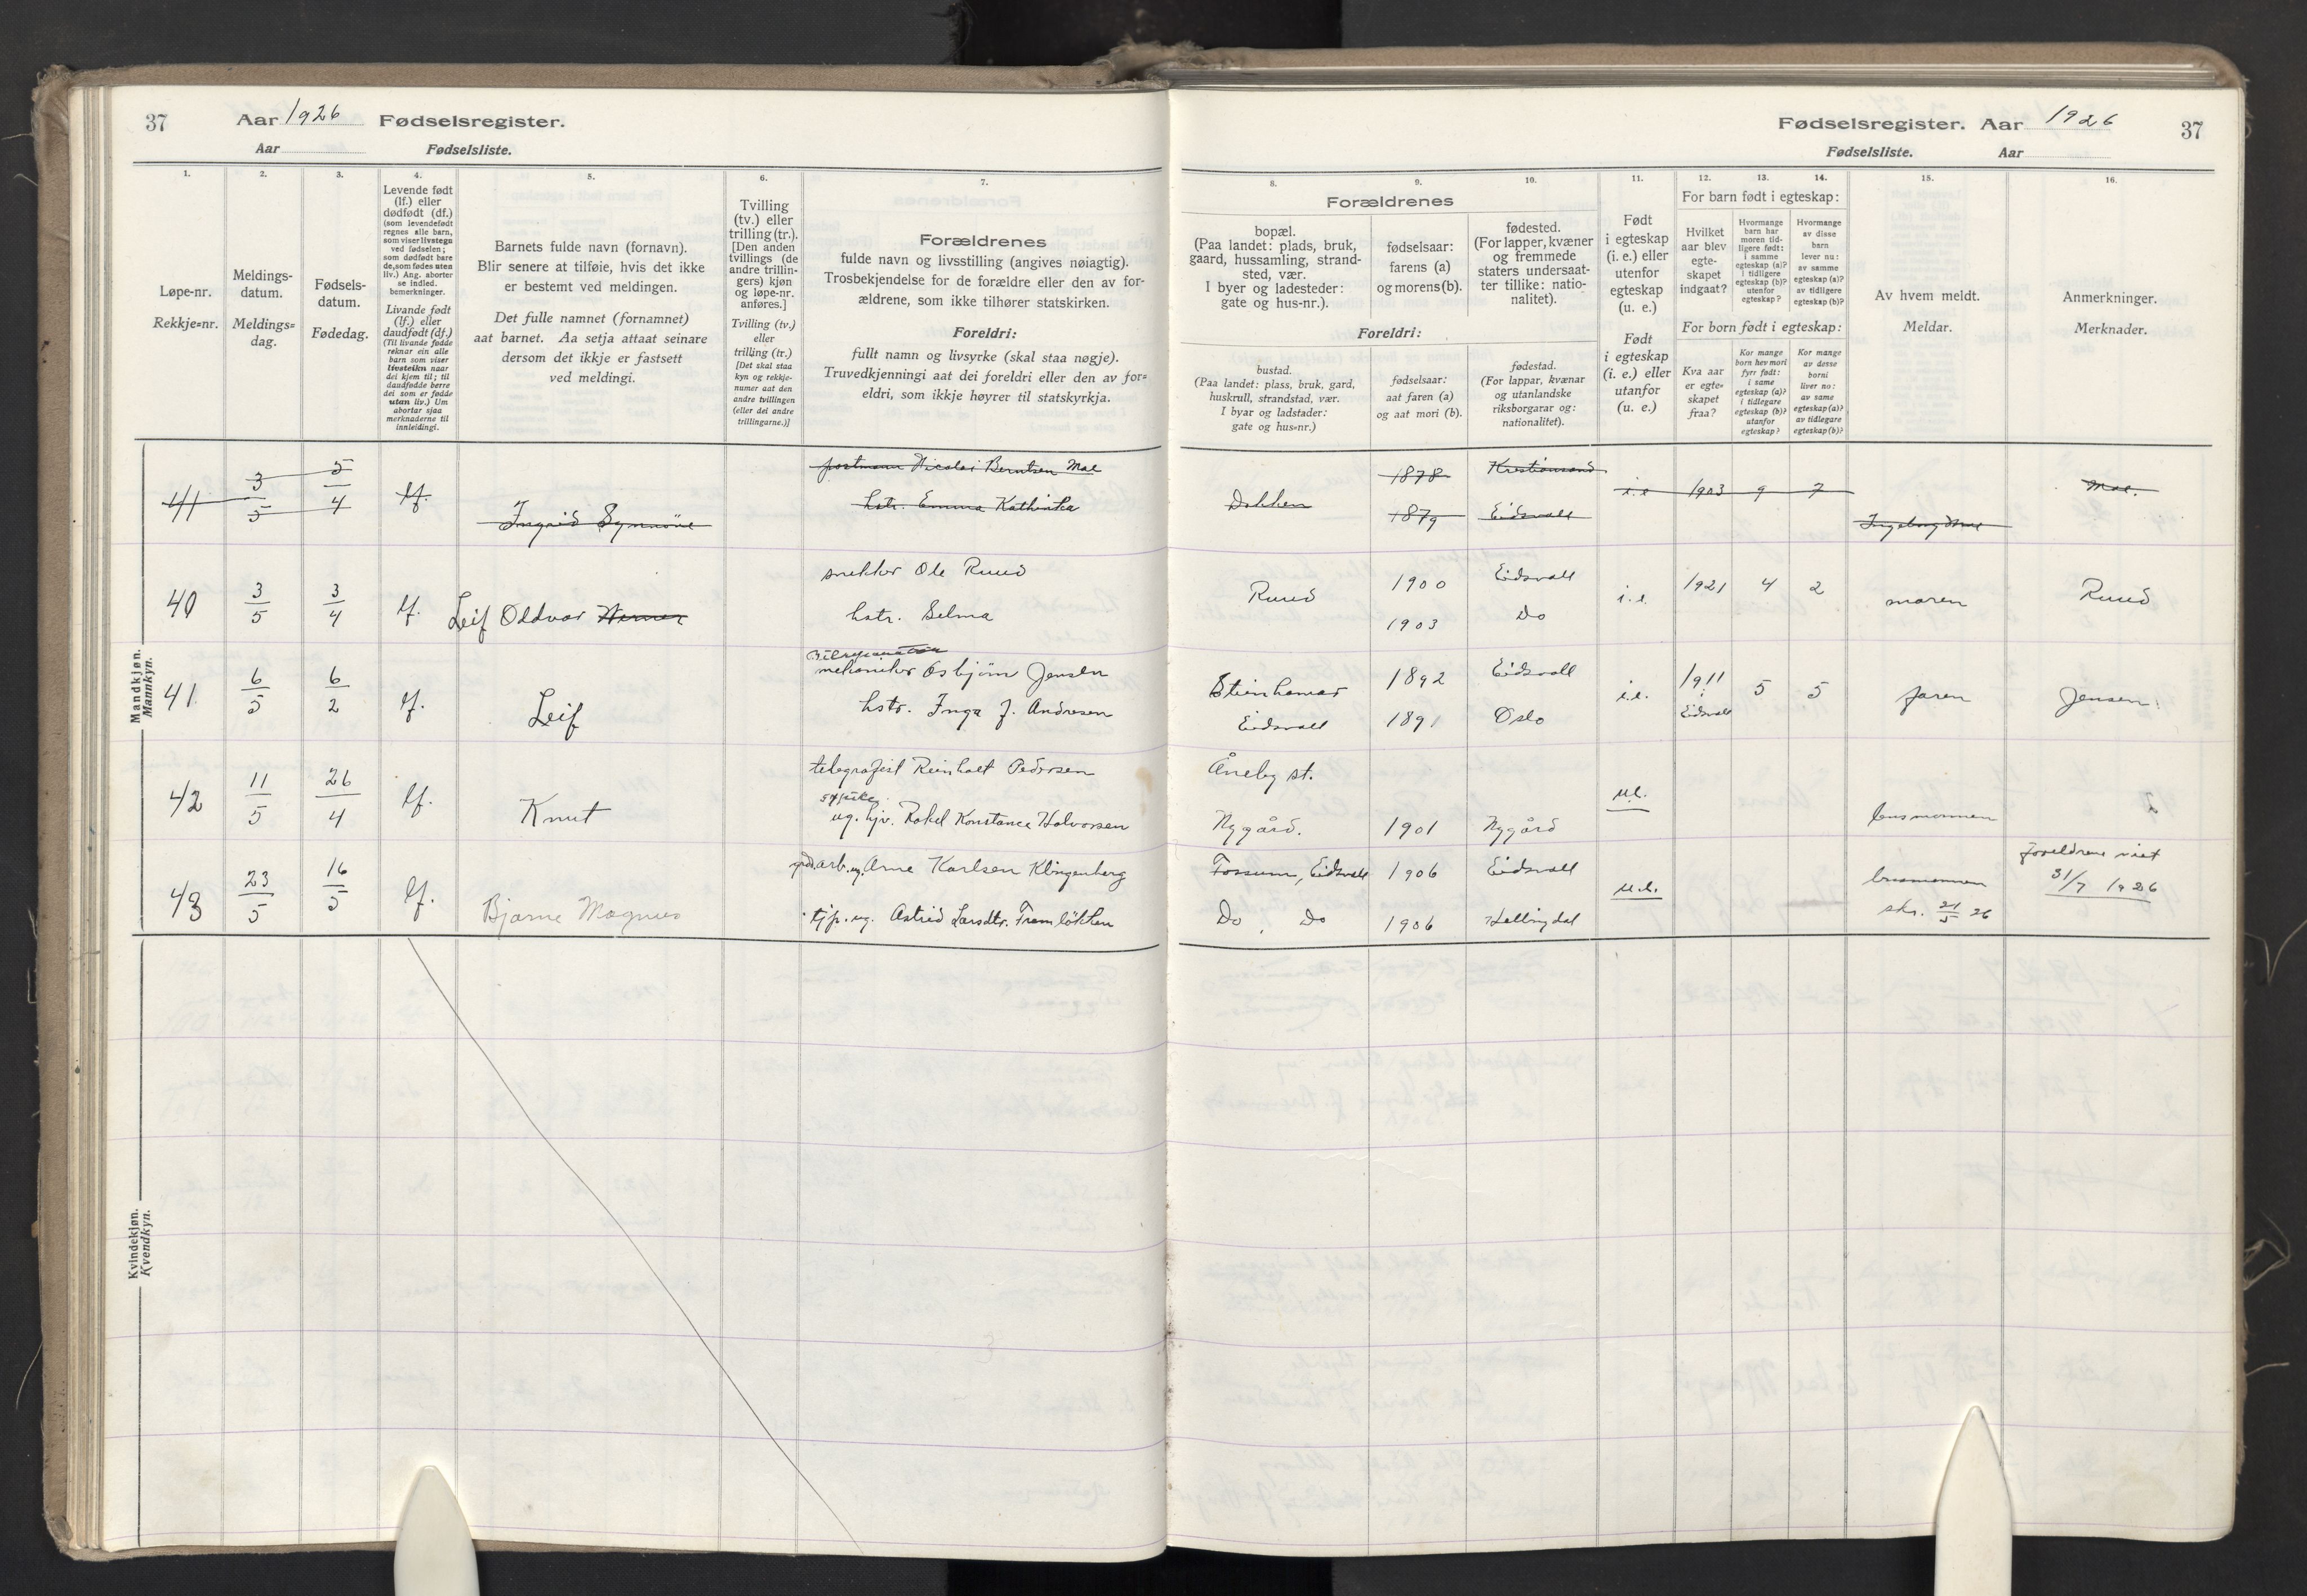 37 Aar 1926 Fødselsregister.
Aar Fødselsliste.
Fødselsregister. Aar 1926 37
Fødselsliste. Aar
1. 2. 3. 4. 5. 6. 7.
Løpe-nr.
Rekkje-nr.
Meldings-
datum.
Meldings-
dag.
Fødsels-
datum.
Fødedag.
Levende født
(lf.) eller
dødfødt (df.)
(som levendefødt
regnes alle barn,
som viser livstegn
ved fødselen;
som dødfødt bare
de, som fødes uten
liv.) Ang. aborter
se indled.
bemerkninger.
Livande født
(lf.) eller
daudfødt (df.)
(Til livande fødde
reknar ein alle
barn som viser
livsteikn naar
dei kjem til; til
daudfødde berre
dei som er fødde
utan liv.) Um
abortar sjaa
merknaderne til
innleidingi.
Barnets fulde navn (fornavn).
Blir senere at tilføie, hvis det ikke
er bestemt ved meldingen.
Det fulle namnet (fornamnet)
aat barnet. Aa setja attaat seinare
dersom det ikkje er fastsett
ved meldingi.
Tvilling
(tv.) eller
trilling (tr.).
[Den anden
tvillings (de
andre trillin-
gers) kjøn
og løpe-nr.
anføres.]
Tvilling (tv.)
eller
trilling (tr.)
[Det skal staa
kyn og rekkje-
numer aat den
andre tvillingen
(eller dei andre
trillingarne.)]
Forældrenes
fulde navn og livsstilling (angives nøiagtig).
Trosbekjendelse for de forældre eller den av for-
ældrene, som ikke tilhører statskirken.
Foreldri:
fullt namn og livsyrke (skal staa nøgje).
Truvedkjenningi aat dei foreldri eller den av for-
eldri, som ikkje høyrer til statskyrkja.
8. 9. 10. 11. 12. 13. 14. 15. 16.
Forældrenes
bopæl.
(Paa landet: plads, bruk,
gaard, hussamling, strand-
sted, vær.
I byer og ladesteder:
gate og hus-nr.).
fødselsaar:
farens (a)
og morens (b).
fødested.
(For lapper, kvæner
og fremmede
staters undersaat-
ter tillike: natio-
nalitet).
Foreldri:
bustad.
(Paa landet: plass, bruk, gard,
huskrull, strandstad, vær.
I byar og ladstader:
gate og hus-nr.)
fødselsaar:
aat faren (a)
og aat mori (b).
fødestad.
(For lappar, kvænar
og utanlandske
riksborgarar og:
nationalitet).
Født
i egteskap
(i. e.) eller
utenfor
egteskap
(u. e.)
Født
i egteskap
(i. e.) eller
utanfor
(u. e.)
For barn født i egteskap:
Hvilket
aar blev
egte-
skapet
indgaat?
Hvormange
barn har
moren tid-
ligere født:
i samme
egteskap (a)?
i tidligere
egteskap (b)?
utenfor
egteskap?
Hvormange
av disse
barn
lever nu:
av samme
egteskap (a)?
av tidligere
egteskap (b)?
For born født i egteskap:
Kva aar
er egte-
skapet
fraa?
Kor mange
born hev mori
fyrr født:
i same
egteskap (a)?
i tidlegare
egteskap (b)?
utanfor
egteskap?
Kor mange
av desse
borni
liver no:
av same
egteskap (a)?
av tidlegare
egteskap (b)?
Av hvem meldt.
Meldar.
Anmerkninger.
Merknader.
Mandkjøn.
Mannkyn.
41 3/5 5/4 lf. Ingrid Synnöve
postmann Nicolai Berntsen Moe
hstr. Emma Kathinka
Dokken 1878 Kristiansand
1879 Eidsvoll
i.e 1903 9 7 Ingeborg Moe Moe.
40 3/5 3/4 lf. Leif Oddvar Werner
snekker Ole Ruud
hstr. Selma
Ruud 1900 Eidsvoll
1903 Do
i.e. 1921 4 2 moren Ruud
41 6/5 6/2 lf. Leif
mekaniker Asbjörn Jensen
hstr. Inga J. Andresen
Steinhamar 1892 Eidsvoll
Eidsvoll 1891 Oslo
i.e. 1911 Eidsvoll 5 5 faren Jensen
42 11/5 26/4 lf. Knut
telegrafist Reinholt Pedersen
ug. hjv. Rakel Konstance Halvorsen
Åneby st.
Nygård. 1901 Nygård
u.e.
43 23/5 16/5 lf. Bjarne Magnus
grd.arb. ug. Arne Karlsen Klingenberg
tjp. ug. Astrid Larsdtr. Framlökken
Fossum, Eidsvoll 1906 Eidsvoll
Do, Do 1906 Hallingdal
u.e.
skr. 21/5 26
Foreldrene viet
31/7 1926
Kvindekjøn.
Kvendkyn.